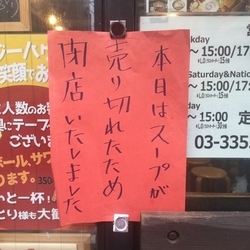 本日はスープが
売り切れたため
閉店いたしました
ジーハウ
笑顔でお
大人数のお
にテーブ
ございま
ボール、サワ
ります。350
っと一杯!
とり様も大
kday
~15:00/17
Saturday&Natio
~15:00/17
定
03-335